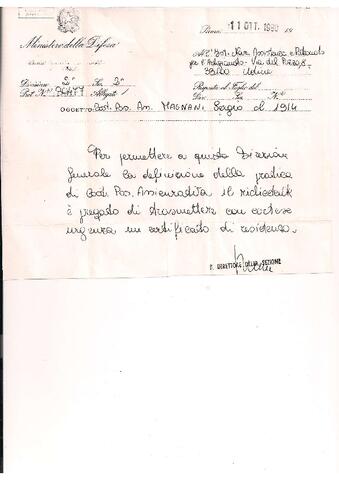 Roma, 11 OTT. 1980 19
Ministero della Difesa
All' Ist. Naz. Assistenza e Patronato
per l'Artigianato - Via del Pozzo, 8
33100 Udine
Divisione 2ª Sez. 2ª
Prot. N° Allegati 1
Risposta al Foglio del
Div. Sez. N°
OGGETTO: Cost. Pos. Ass. MAGNANI Sergio cl. 1914
Per permettere a questa Direzione
Generale la definizione della pratica
di Cost. Pos. Assicurativa il richiedente
è pregato di trasmettere con cortese
urgenza un certificato di residenza.
IL DIRETTORE DELLA SEZIONE